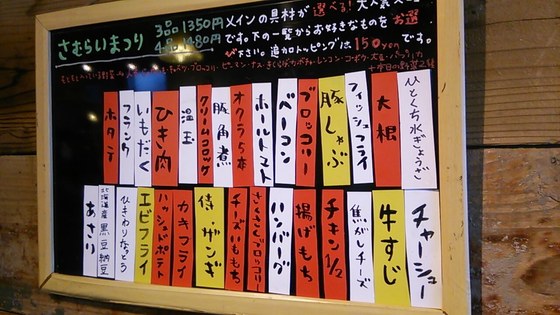 さむらいまつり
3品1350円
4品1480円
メインの具材が選べる!
です。下の一覧からお好きなものをお選
び下さい。追加トッピングは150yen
です。
ひとくち水ぎょうざ
大根
フィッシュフライ
豚しゃぶ
ブロッコリー
ベーコン
ホールトマト
オクラ5本
豚角煮
クリームコロッケ
温玉
ひき肉
いもだく
フランク
ホタテ
チャーシュー
牛すじ
焦がしチーズ
チキン1/2
揚げもち
ハンバーグ
さくさくブロッコリー
チーズいももち
侍・ザンギ
カキフライ
ハッシュドポテト
エビフライ
ひきわりなっとう
北海道産黒豆納豆
あさり